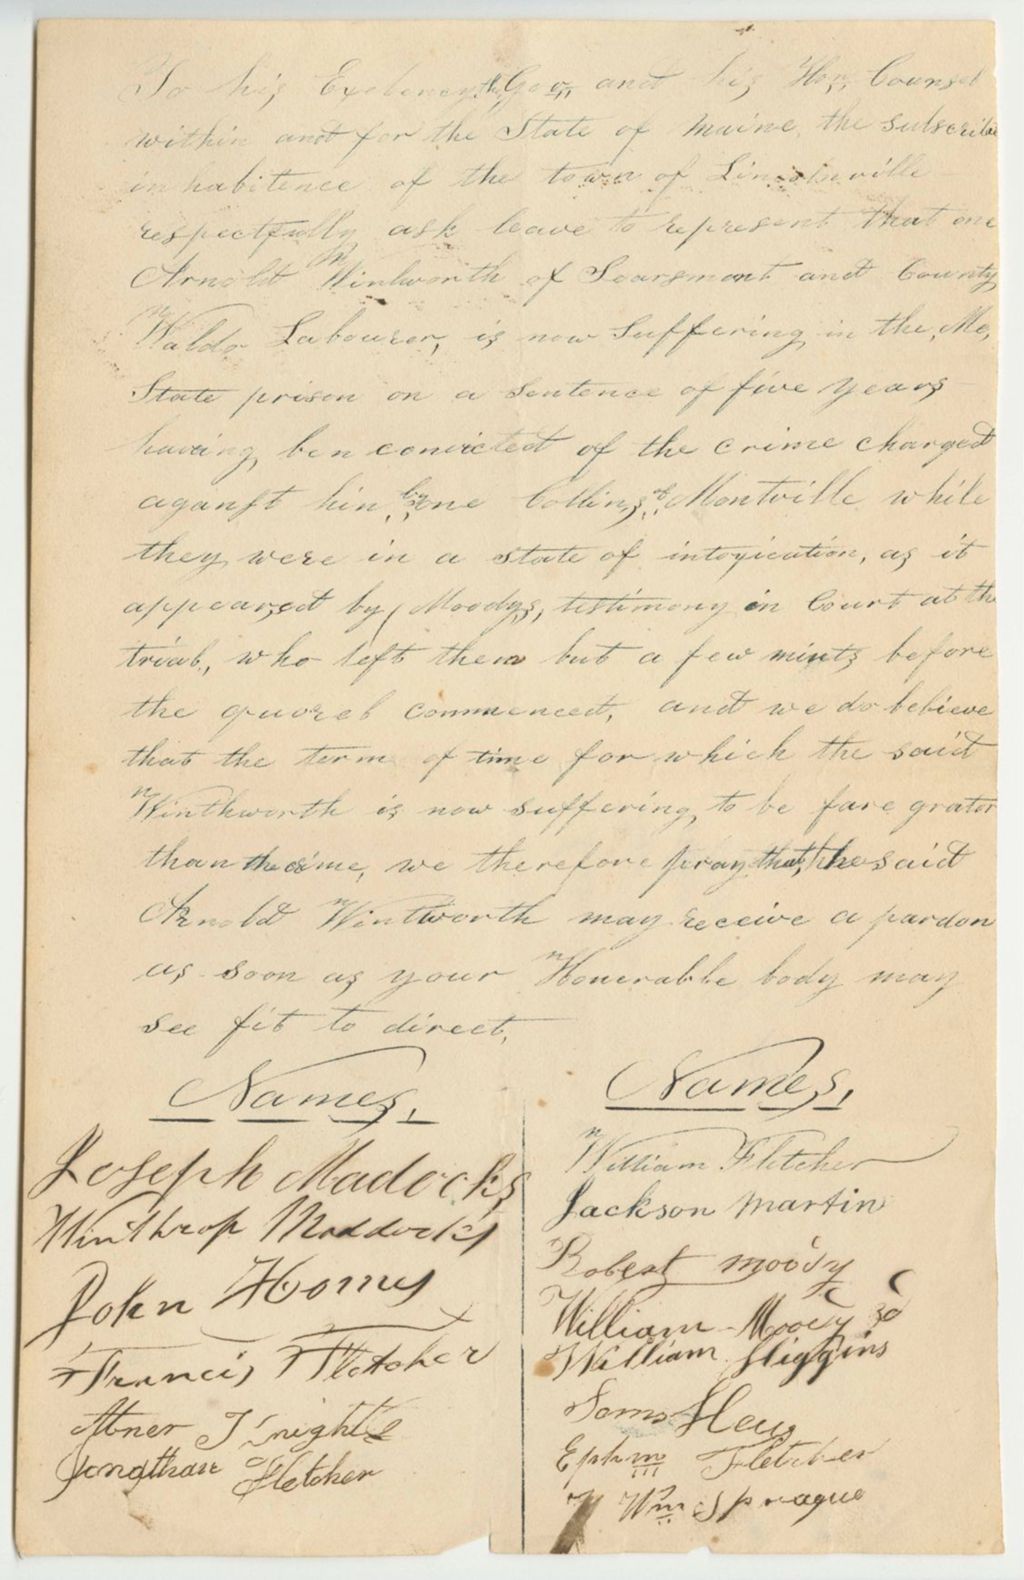 To his Exelency the Gov and his Hon Counsel
within and for the State of Maine, the subscribe
inhabitence of the town of Lincolnville
respectfully ask leave to represent that one
Arnold Wintworth of Searsmont and County
Waldo Labourer, is now Suffering in the, Me,
State prison on a sentence of five years
having ben convicted of the crime charged
aganst him, by one Collins of Montville while
they were in a state of intoxication, as it
appeared by, Moodys, testimony in Court at the
trial, who left them but a few mints before
the quorel commenced, and we do believe
that the term of time for which the said
Winthworth is now suffering, to be fare grater
than the crime, we therefore pray that, the said
Arnold Wintworth may receive a pardon
as soon as your Honerable body may
see fit to direct.
Names,
Names,
Joseph Madocks
Winthrop Maddocks
John
Francis Fletcher
Abner Knight
Jonathan Fletcher
William Fletcher
Jackson Martin
Robert Moody
William Moody 3d
William Higgins
Ephm Fletcher
Wm Sprague